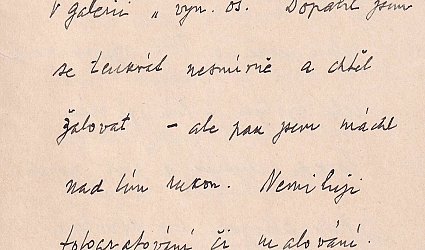 v galerii „ vyn. os. Dopálil jsem
se tenkrát nesmírně a chtěl
žalovat – ale pak jsem máchl
nad tím rukou. Nemiluji
fotografování či malování.